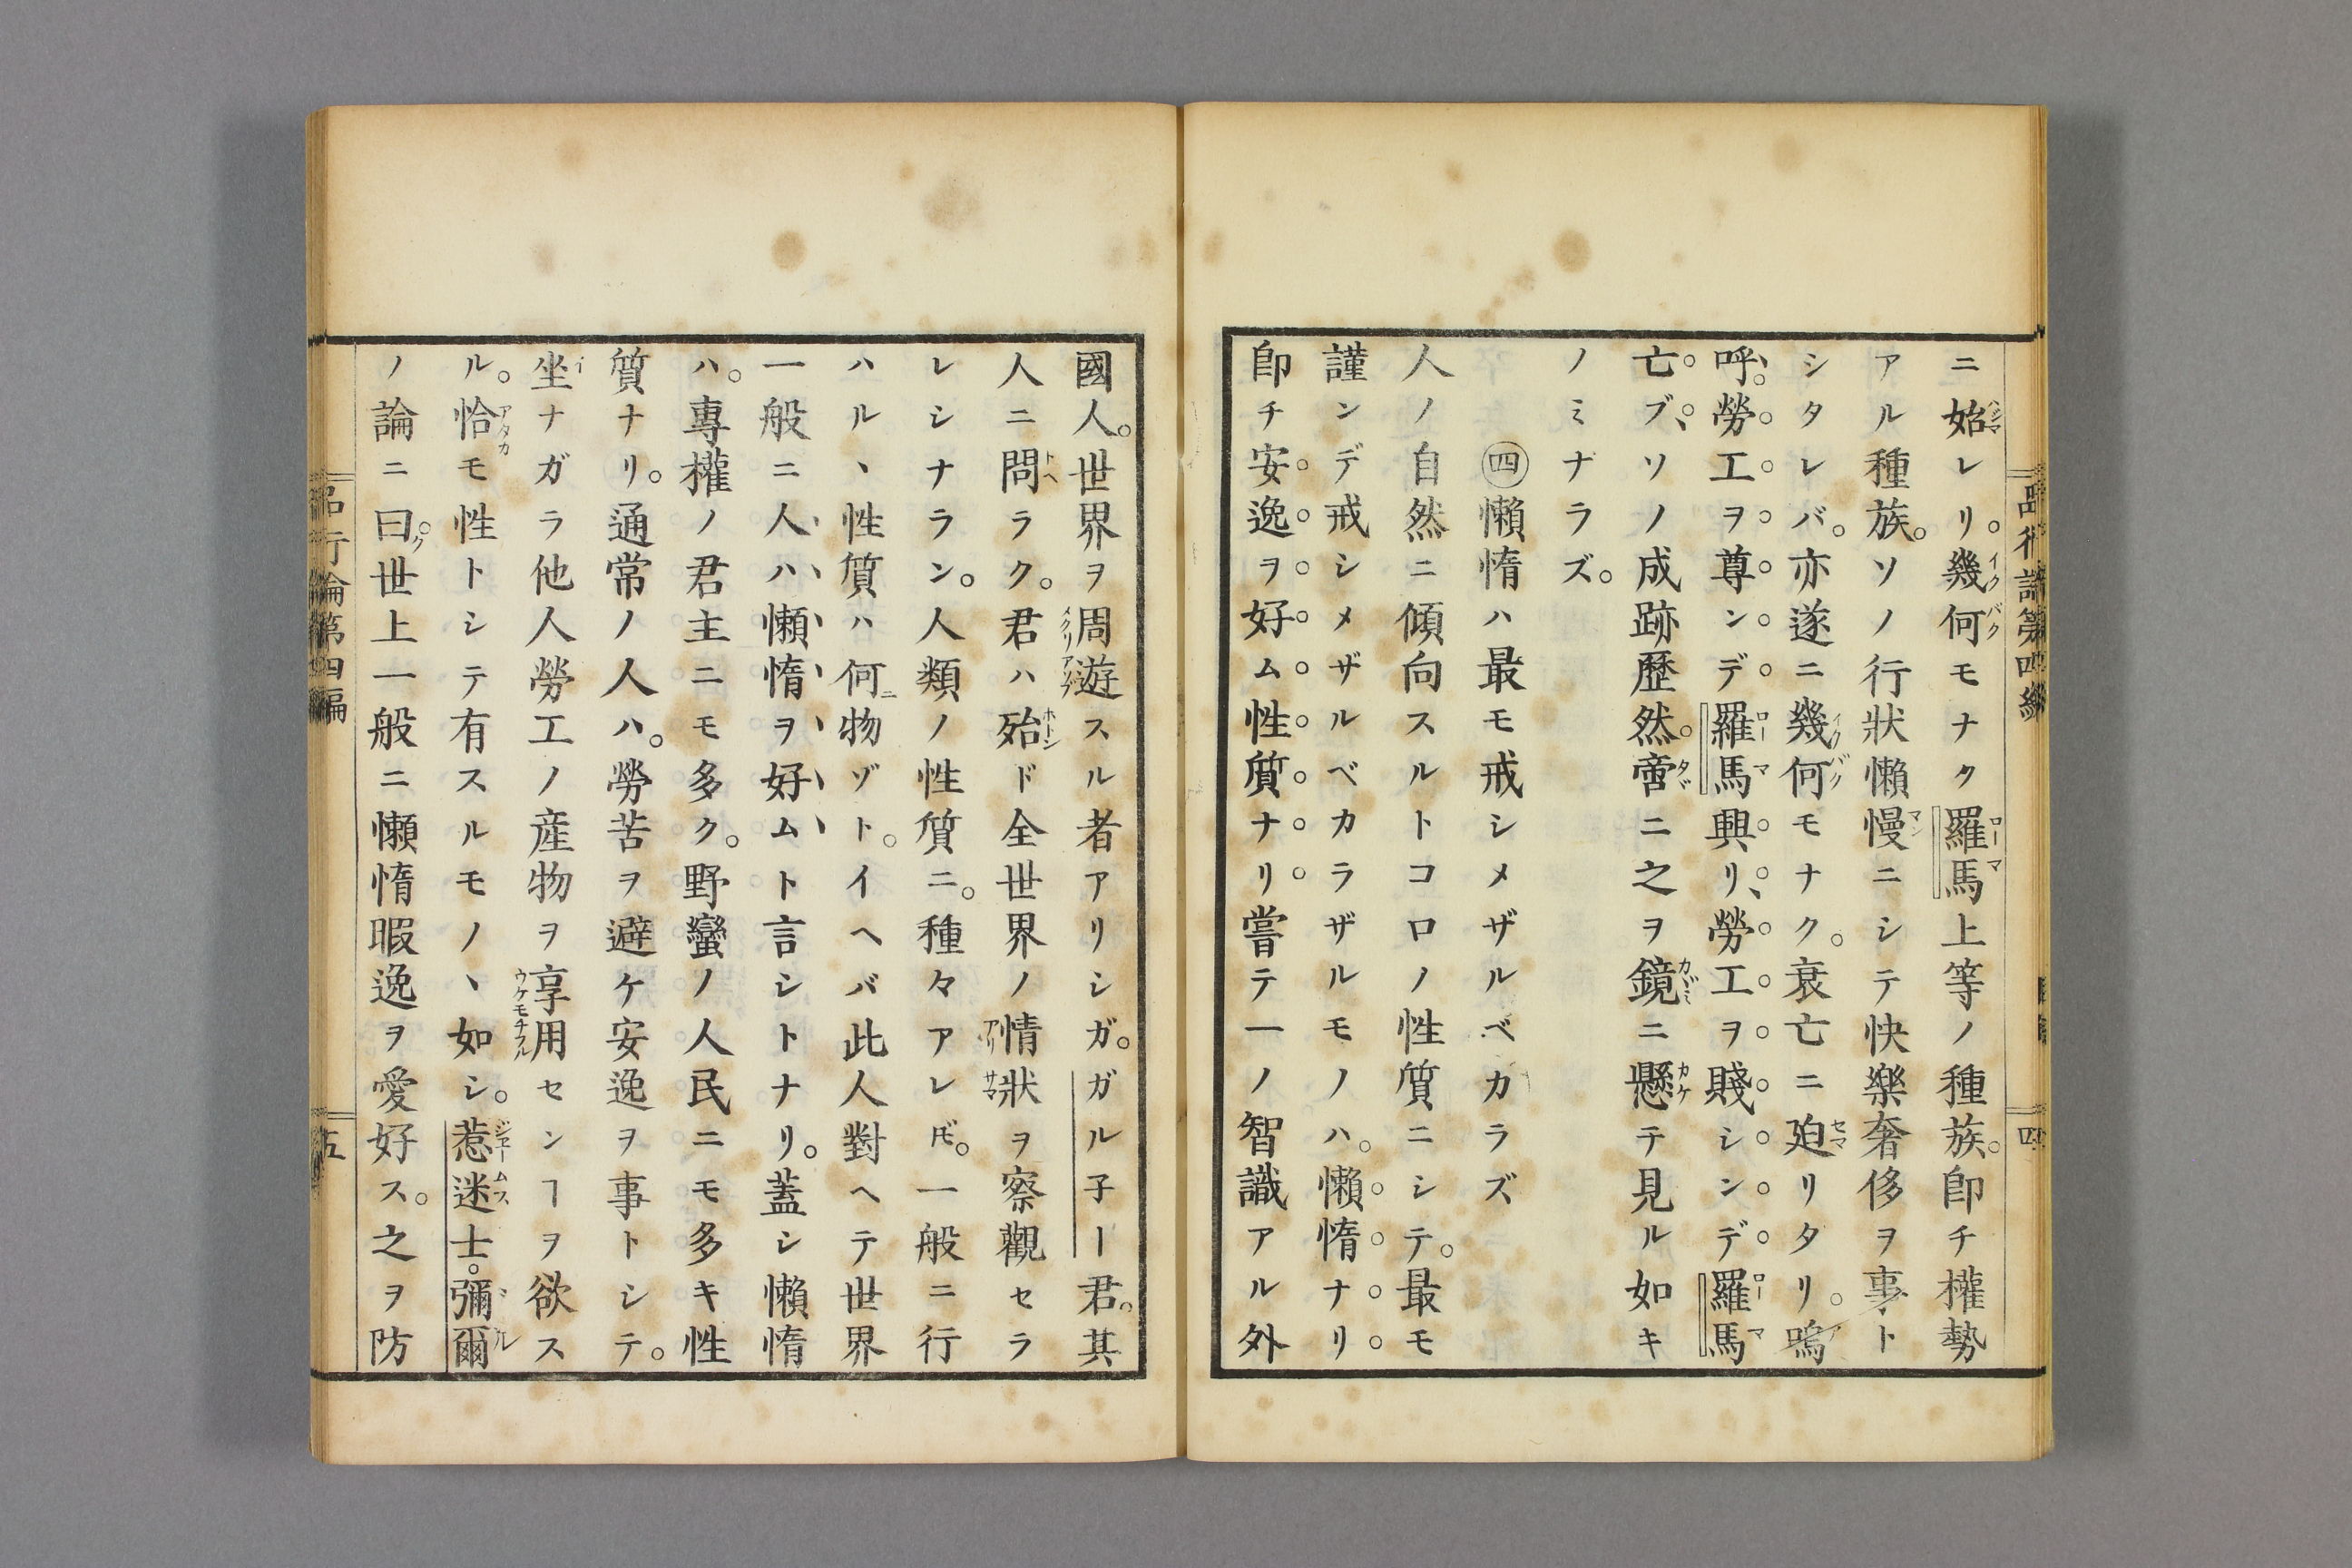 ニ始レリ。幾何モナク羅馬上等ノ種族。卽チ權勢
アル種族。ソノ行狀懶慢ニシテ快樂奢侈ヲ事ト
シタレバ。亦遂ニ幾何モナク。衰亡ニ廹リタリ。嗚
呼、勞工ヲ尊ンデ羅馬興リ、勞工ヲ賤シンデ羅馬
亡ブ、ソノ成跡歷然。啻ニ之ヲ鏡ニ懸テ見ル如キ
ノミナラズ。
㊃懶惰ハ最モ戒シメザルベカラズ
人ノ自然ニ傾向スルトコロノ性質ニシテ。最モ
謹ンデ戒シメザルベカラザルモノハ。懶惰ナリ
卽チ安逸ヲ好ム性質ナリ嘗テ一ノ智識アル外
國人。世界ヲ周遊スル者アリシガ。ガル子ー君。其
人ニ問ラク。君ハ殆ド全世界ノ情狀ヲ察觀セラ
レシナラン。人類ノ性質ニ。種々アレ𪜈。一般ニ行
ハルヽ性質ハ何物ゾト。イヘバ此人對ヘテ世界
一般ニ人ハ懶惰ヲ好ムト言シトナリ。蓋シ懶惰
ハ。專權ノ君主ニモ多ク。野蠻ノ人民ニモ多キ性
質ナリ。通常ノ人ハ。勞苦ヲ避ケ安逸ヲ事トシテ。
坐ナガラ他人勞工ノ産物ヲ享用センヿヲ欲ス
ル。恰モ性トシテ有スルモノヽ如シ。惹迷士。彌爾
ノ論ニ曰。世上一般ニ懶惰暇逸ヲ愛好ス。之ヲ防
品行論第四編
五